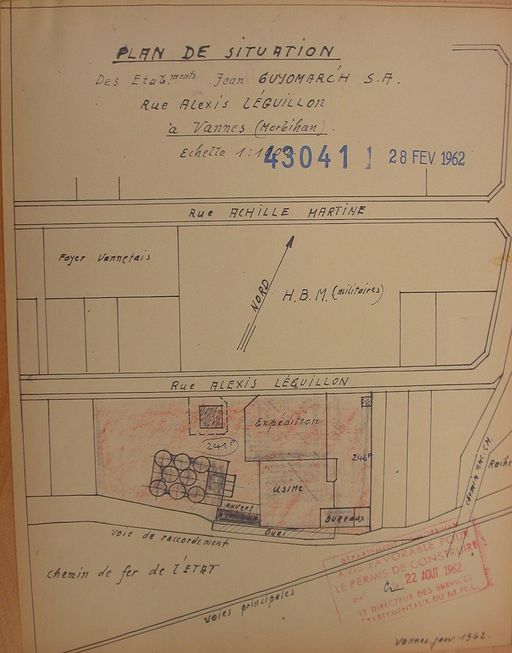 PLAN DE SITUATION
Des Etab.ments Jean GUYOMARC'H S.A.
Rue Alexis LÉGUILLON
à Vannes (Morbihan).
Echelle 1:1000
43041 28 FEV. 1962
Rue ACHILLE MARTINE
Foyer Vannetais
NORD
H.B.M. (militaires)
Rue ALEXIS LÉGUILLON
Expédition
241
Usine
auvent
BUREAUX
Quai
voie de raccordement
chemin de fer de l'ETAT
voies principales
AVIS FAVORABLE POUR
LE PERMIS DE CONSTRUIRE
22 AOUT 1962
LE DIRECTEUR DES SERVICES
DÉPARTEMENTAUX DU M.R.L.
Vannes. janv. 1962.